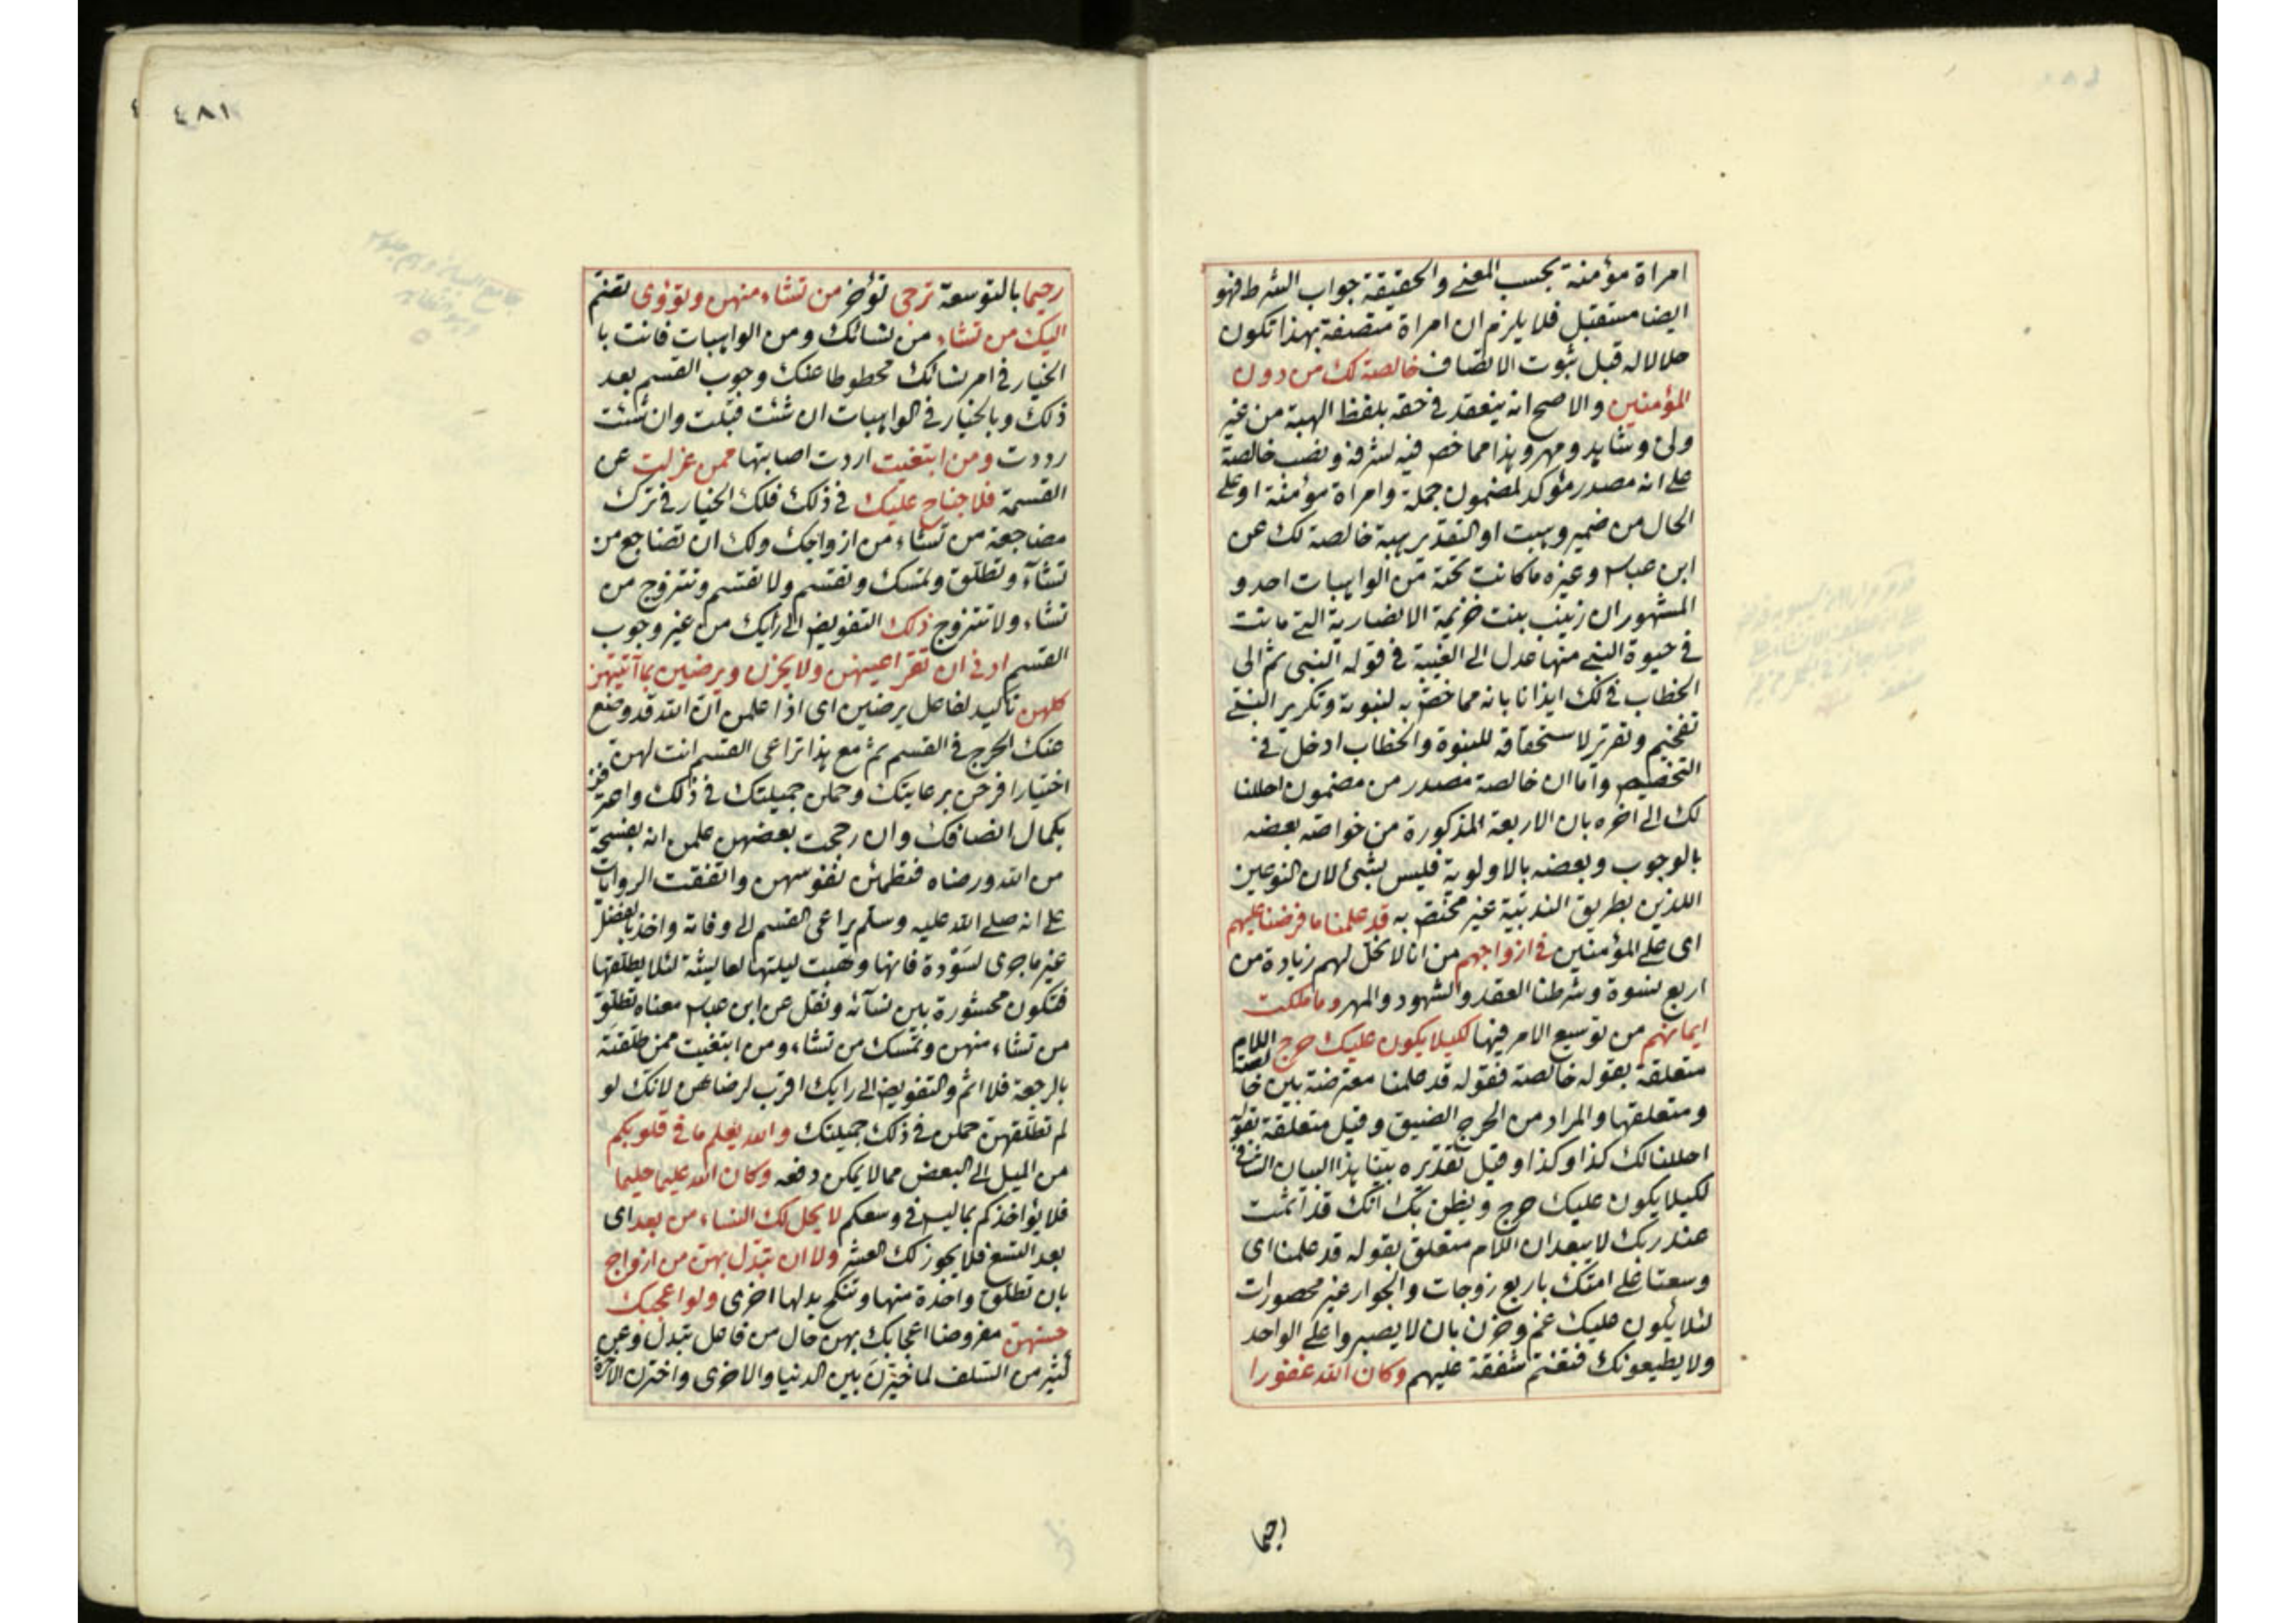 امراة مؤمنة بحسب المعنى والحقيقة جواب الشرط فهو
ايضا مستقبل فلا يلزم ان امراة متصفة بهذا تكون
حلالا له قبل ثبوت الاتصاف خالصة لك من دون
المؤمنين والاصح انه ينعقد فى حقه بلفظ الهبة من غير
ولى وشاهد ومهر وهذا مما خص فيه لشرفه ونصب خالصة
على انه مصدر مؤكد لمضمون جملة وامراة مؤمنة او على
الحال من ضمير وهبت او التقدير هبة خالصة لك عن
ابن عباس وغيره ما كانت تحته من الواهبات احد و
المشهور ان زينب بنت خزيمة الانصارية التى ماتت
فى حيوة النبى منها عدل الى الغيبة فى قوله النبى ثم الى
الخطاب فى لك ايذانا بانه مما خص به لنبوته وتكرير النبى
تفخيم وتقرير لاستحقاقه للنبوة والخطاب ادخل فى
التخصيص واما ان خالصة مصدر من مضمون احللنا
لك الى اخره بان الاربعة المذكورة من خواصه بعضه
بالوجوب وبعضه بالاولوية فليس بشئ لان النوعين
اللذين بطريق الندبية غير مختص به قد علمنا ما فرضنا عليهم
اى على المؤمنين فى ازواجهم من انا لا نحل لهم زيادة من
اربع نسوة وشرطنا العقد والشهود والمهر وما ملكت
ايمانهم من توسيع الامر فيها لكيلا يكون عليك حرج اللام
متعلقة بقوله خالصة فقوله قد علمنا معترضة بين خا لصة
ومتعلقها والمراد من الحرج الضيق وقيل متعلقة بقوله
احللنا لك كذا وكذا وقيل تقديره بينا هذا البيان الشافى
لكيلا يكون عليك حرج ويظن بك انك قد اثمت
عند ربك لا يبعد ان اللام متعلق بقوله قد علمنا اى
وسعنا على امتك باربع زوجات والجوار غير محصورات
لئلا يكون عليك غم وحزن بان لا يصبروا على الواحد
ولا يطيعونك فتغتم شفقة عليهم وكان الله غفورا
٤٨١
رحيما بالتوسعة ترجى تؤخر من تشاء منهن وتؤوى تضم
اليك من تشاء من نسائك ومن الواهبات فانت با
الخيار فى امر نسائك محطوطا عنك وجوب القسم بعد
ذلك وبالخيار فى الواهبات ان شئت قبلت وان شئت
رددت ومن ابتغيت اردت اصابتها ممن عزلت عن
القسمة فلا جناح عليك فى ذلك فلك الخيار فى ترك
مضاجعة من تشاء من ازواجك ولك ان تضاجع من
تشآء وتطلق وتمسك وتقسم ولا تقسم وتتزوج من
تشاء ولا تتزوج ذلك التفويض الى رايك من غير وجوب
القسم ادنى ان تقر اعينهن ولا يحزن ويرضين بما آتيتهن
كلهن تأكيد لفاعل يرضين اى اذا علمن ان الله قد وضع
عنك الحرج فى القسم ثم مع هذا تراعى القسم انت لهن
اختيارا فرحن برعايتك وحملن جميلتك فى ذلك واعترفن
بكمال انصافك وان رجحت بعضهن علمن انه بفسحة
من الله ورضاه فتطمئن نفوسهن واتفقت الروايات
على انه صلى الله عليه وسلم يراعى القسم الى وفاته واخذ بافضل
غير ما جرى لسودة فانها وهبت ليلتها لعايشة لئلا يطلقها
فتكون محشورة بين نسآئه ونقل عن ابن عباس معناه تطلق
من تشاء منهن وتمسك من تشاء ومن ابتغيت ممن طلقته
بالرجعة فلا اثم والتفويض الى رايك اقرب لرضاهن لانك لو
لم تطلقهن حملن فى ذلك جميلتك والله يعلم ما فى قلوبكم
من الميل الى البعض مما لا يمكن دفعه وكان الله عليما حليما
فلا يؤاخذكم بما ليس فى وسعكم لا يحل لك النساء من بعد اى
بعد التسع فلا يجوز لك العشر ولا ان تبدل بهن من ازواج
بان تطلق واحدة منها وتنكح بدلها اخرى ولو اعجبك
حسنهن مفروضا اعجابك بهن حال من فاعل تبدل وعن
كثير من السلف لما خيرن بين الدنيا والاخرى واخترن الاخرة